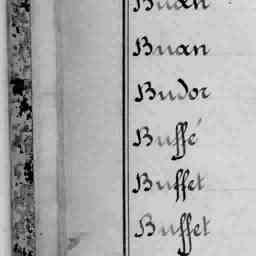 Buan
Buan
Budor
Buffé
Buffet
Buffet